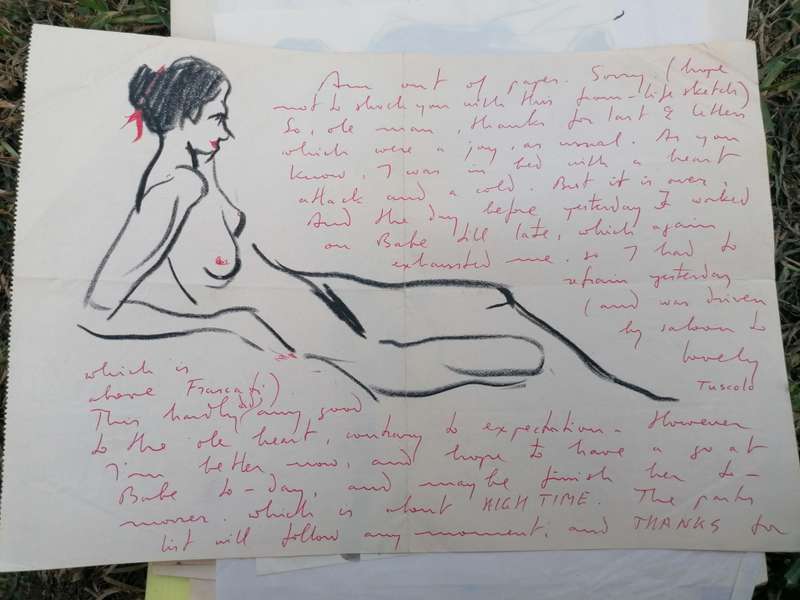 Am out of paper. Sorry (hope
not to shock you with this from-life sketch)
So, ole man, thanks for last 2 letters
which were a joy, as usual. As you
know, I was in bed with a heart
attack and a cold. But it is over.
And the day before yesterday I worked
on Babe till late, which again
exhausted me. so I had to
refrain yesterday
(and was driven
by saloon to
lovely
Tuscolo
which is
above Frascati).
This hardly did any good
to the ole heart, contrary to expectation. However
I'm better now, and hope to have a go at
Babe to-day, and maybe finish her to-
morrow. which is about HIGH TIME. The parts
list will follow any moment, and THANKS for